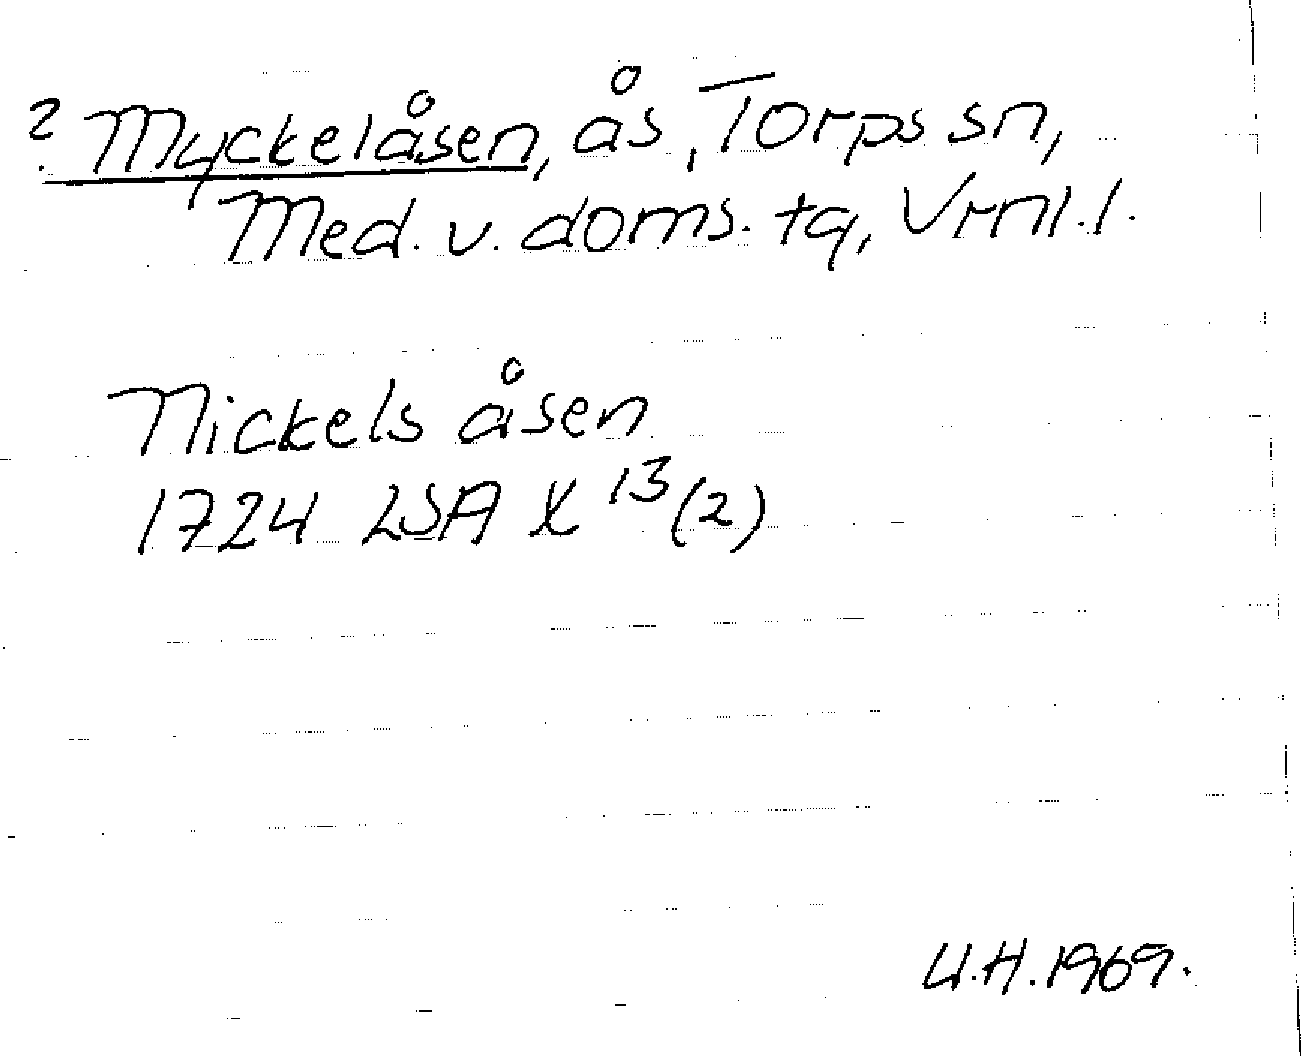 ? Myckelåsen, ås, Torps sn,
Med. v. doms. tg, Vrnl. l.
Nickels åsen
1724 LSA X 13 (2)
U.H. 1969.